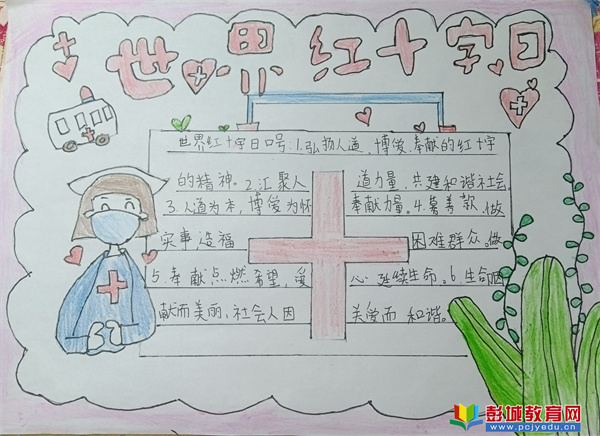 世界红十字日
世界红十字日口号:1.弘扬人道、博爱、奉献的红十字
的精神。2.汇聚人道力量,共建和谐社会。
3.人道为本,博爱为怀,奉献力量。4.募善款,做
实事,造福困难群众。做
5.奉献点燃希望,爱心延续生命。6.生命因
献而美丽,社会人因关爱而和谐。
彭城教育网
www.pcjyedu.cn